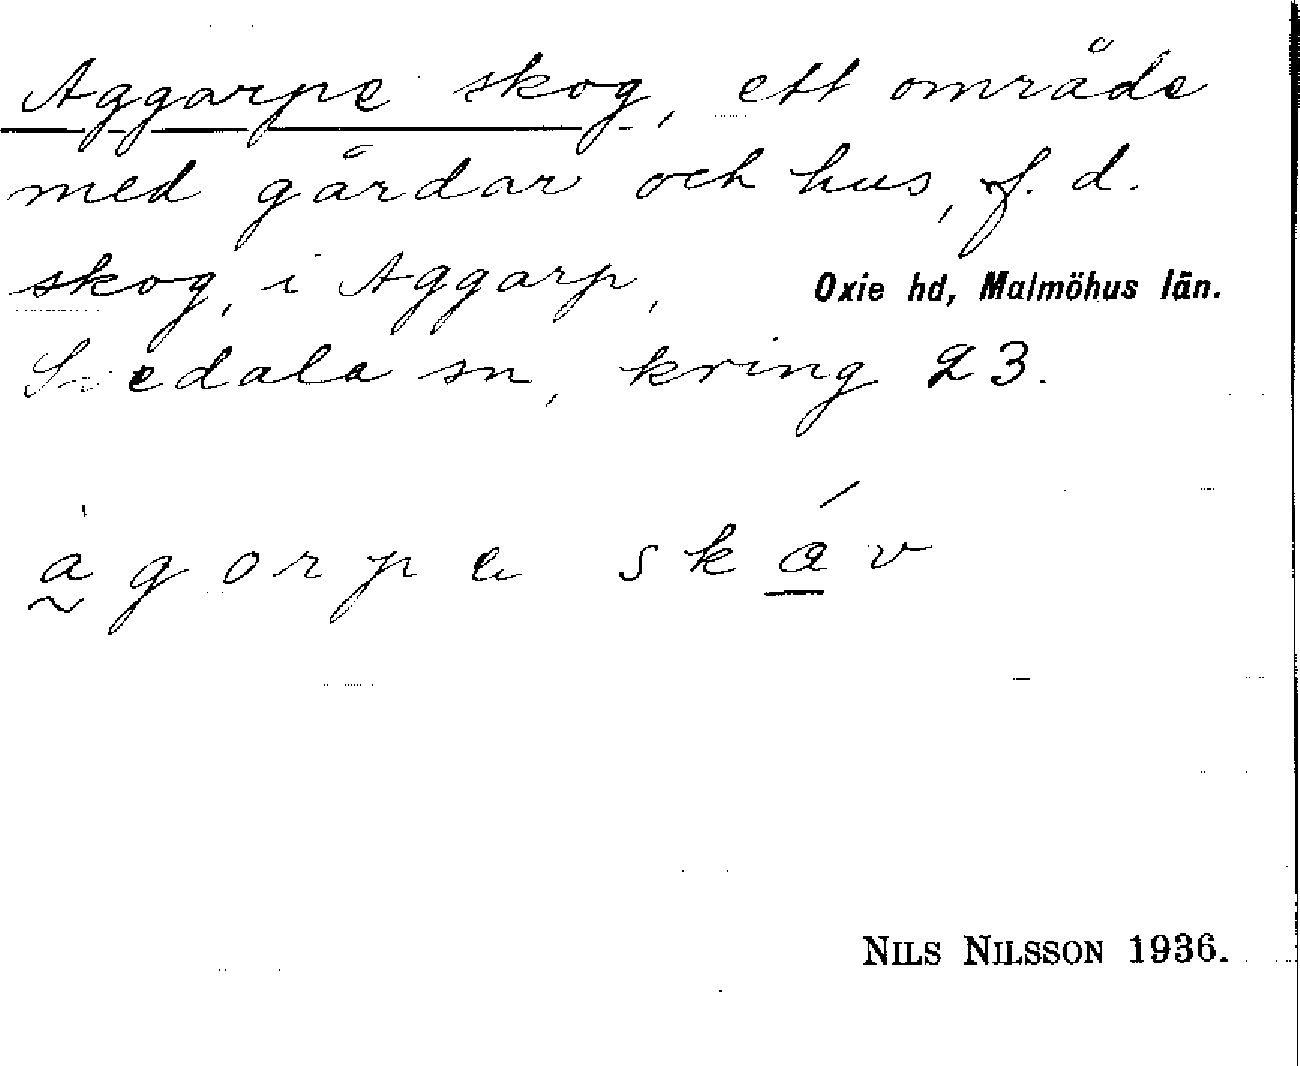 Aggarps skog, ett område
med gårdar och hus, f. d.
skog, i Aggarp,
Oxie hd, Malmöhus län.
Svedala sn, kring 23.
àgorpa skáv
NILS NILSSON 1936.